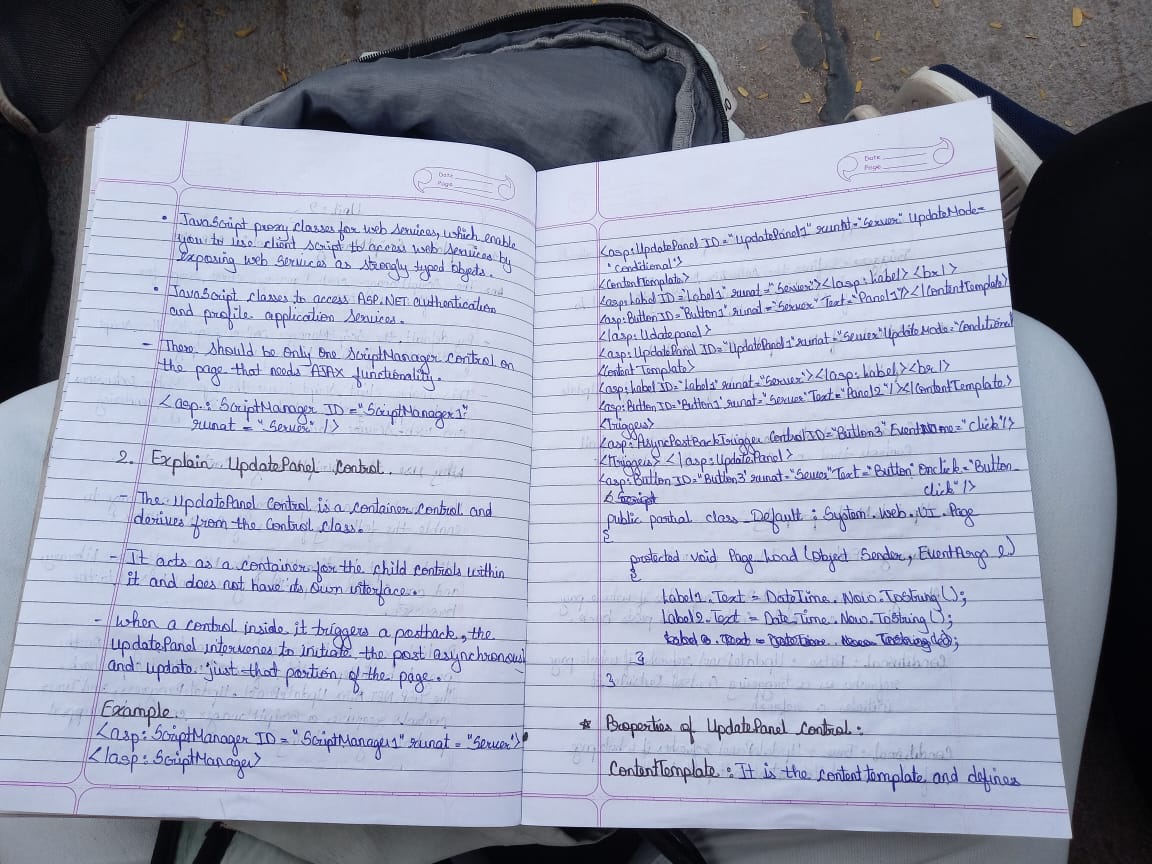 Date
Page
• JavaScript proxy classes for web services, which enable
you to use client script to access web services by
exposing web services as strongly typed objects.
• JavaScript classes to access ASP.NET authentication
and profile application services.
- There should be only one ScriptManager control on
the page that needs AJAX functionality.
<asp: ScriptManager ID = "ScriptManager1"
runat = "Server" />
2. Explain UpdatePanel Control.
- The UpdatePanel Control is a container control and
derives from the control class.
- It acts as a container for the child controls within
it and does not have its own interface.
- When a control inside it triggers a postback, the
UpdatePanel intervenes to initiate the post asynchronous
and update just that portion of the page.
Example.
<asp: ScriptManager ID = "ScriptManager1" runat = "Server">
</asp: ScriptManager>
Date
Page
<asp:UpdatePanel ID="UpdatePanel1" runat="Server" UpdateMode=
"Conditional">
<ContentTemplate>
<asp:Label ID="Label1" runat="Server"></asp:Label> <br/>
<asp:Button ID="Button1" runat="Server" Text="Panel1"/></ContentTemplate>
</asp: Udatepanel>
<asp: UpdatePanel ID="UpdatePanel1" runat="Server" UpdateMode="Conditional
<Content Template>
<asp:Label ID="Label1" runat="Server"></asp:Label><br/>
<asp:Button ID="Button1" runat="Server" Text="Panel2"/></ContentTemplate>
<Triggers>
<asp:AsyncPostBackTrigger ControlID="Button3" EventName="Click"/>
</Triggers> </asp:UpdatePanel>
<asp:Button ID="Button3" runat="Server" Text="Button" Onclick="Button_
click"/>
public partial class _Default : System.Web.UI.Page
{
protected void Page_Load (Object Sender, EventArgs e)
{
Label1.Text = DateTime.Now.ToString();
Label2.Text = Date.Time.Now.ToString();
}
}
* Properties of UpdatePanel Control:
ContentTemplate: It is the content template and defines